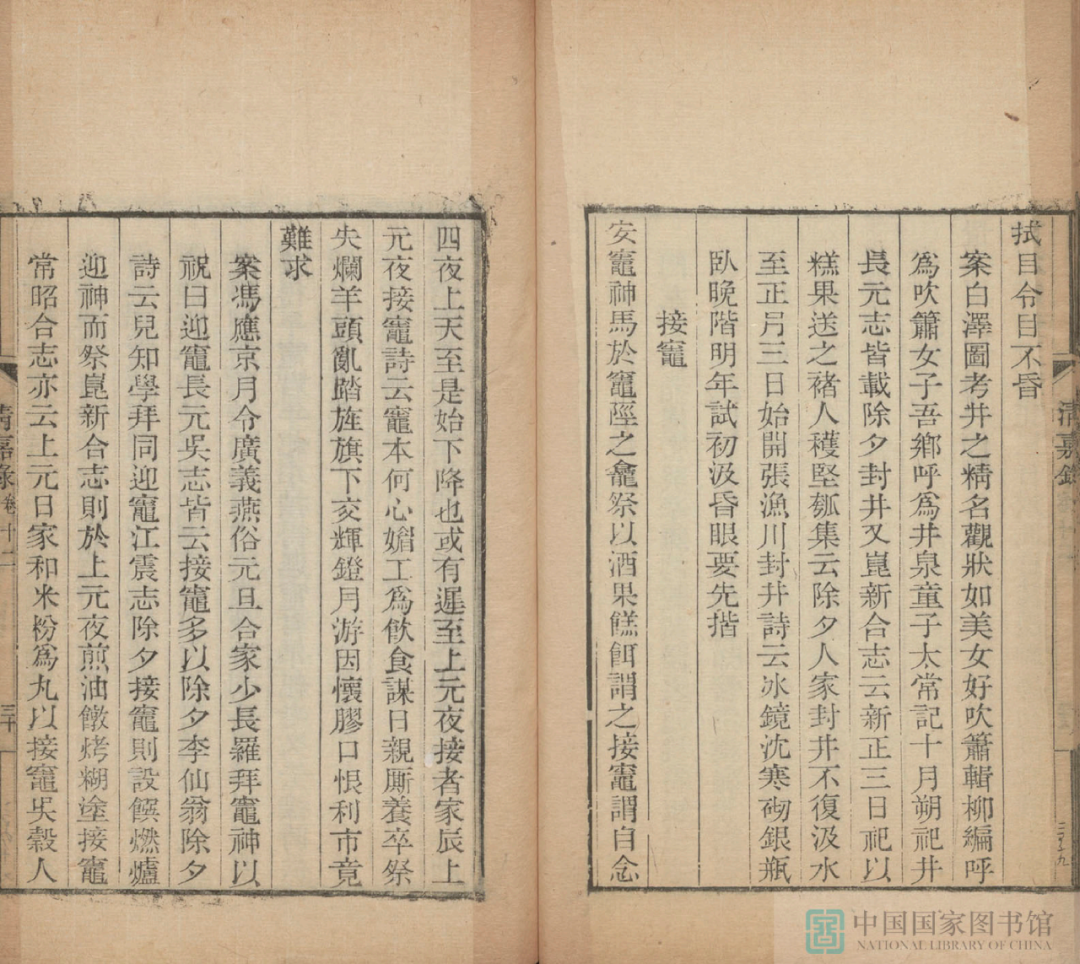 拭目令目不昏
案白澤圖考井之精名觀狀如美女好吹簫輯柳編呼
爲吹簫女子吾鄉呼爲井泉童子太常記十月朔祀井
長元志皆載除夕封井又崑新合志云新正三日祀以
糕果送之褚人穫堅瓠集云除夕人家封井不復汲水
至正月三日始開張漁川封井詩云冰鏡沈寒砌銀瓶
臥晚階明年試初汲昏眼要先揩
接竈
安竈神馬於竈陘之龕祭以酒果餻餌謂之接竈謂自念
清嘉錄
四夜上天至是始下降也或有遲至上元夜接者家辰上
元夜接竈詩云竈本何心媚工爲飮食謀日親厮養卒祭
失爛羊頭亂踏旌旗下交輝鐙月游因懷膠口悵利市竟
難求
案馮應京月令廣義燕俗元旦合家少長羅拜竈神以
祝曰迎竈長元吳志皆云接竈多以除夕李仙翁除夕
詩云兒知學拜同迎竈江震志除夕接竈則設饌燃爐
迎神而祭崑新合志則於上元夜煎油餻烤糊塗接竈
常昭合志亦云上元日家和米粉爲丸以接竈吳穀人
清嘉錄 卷十二
三十
中国国家图书馆
NATIONAL LIBRARY OF CHINA